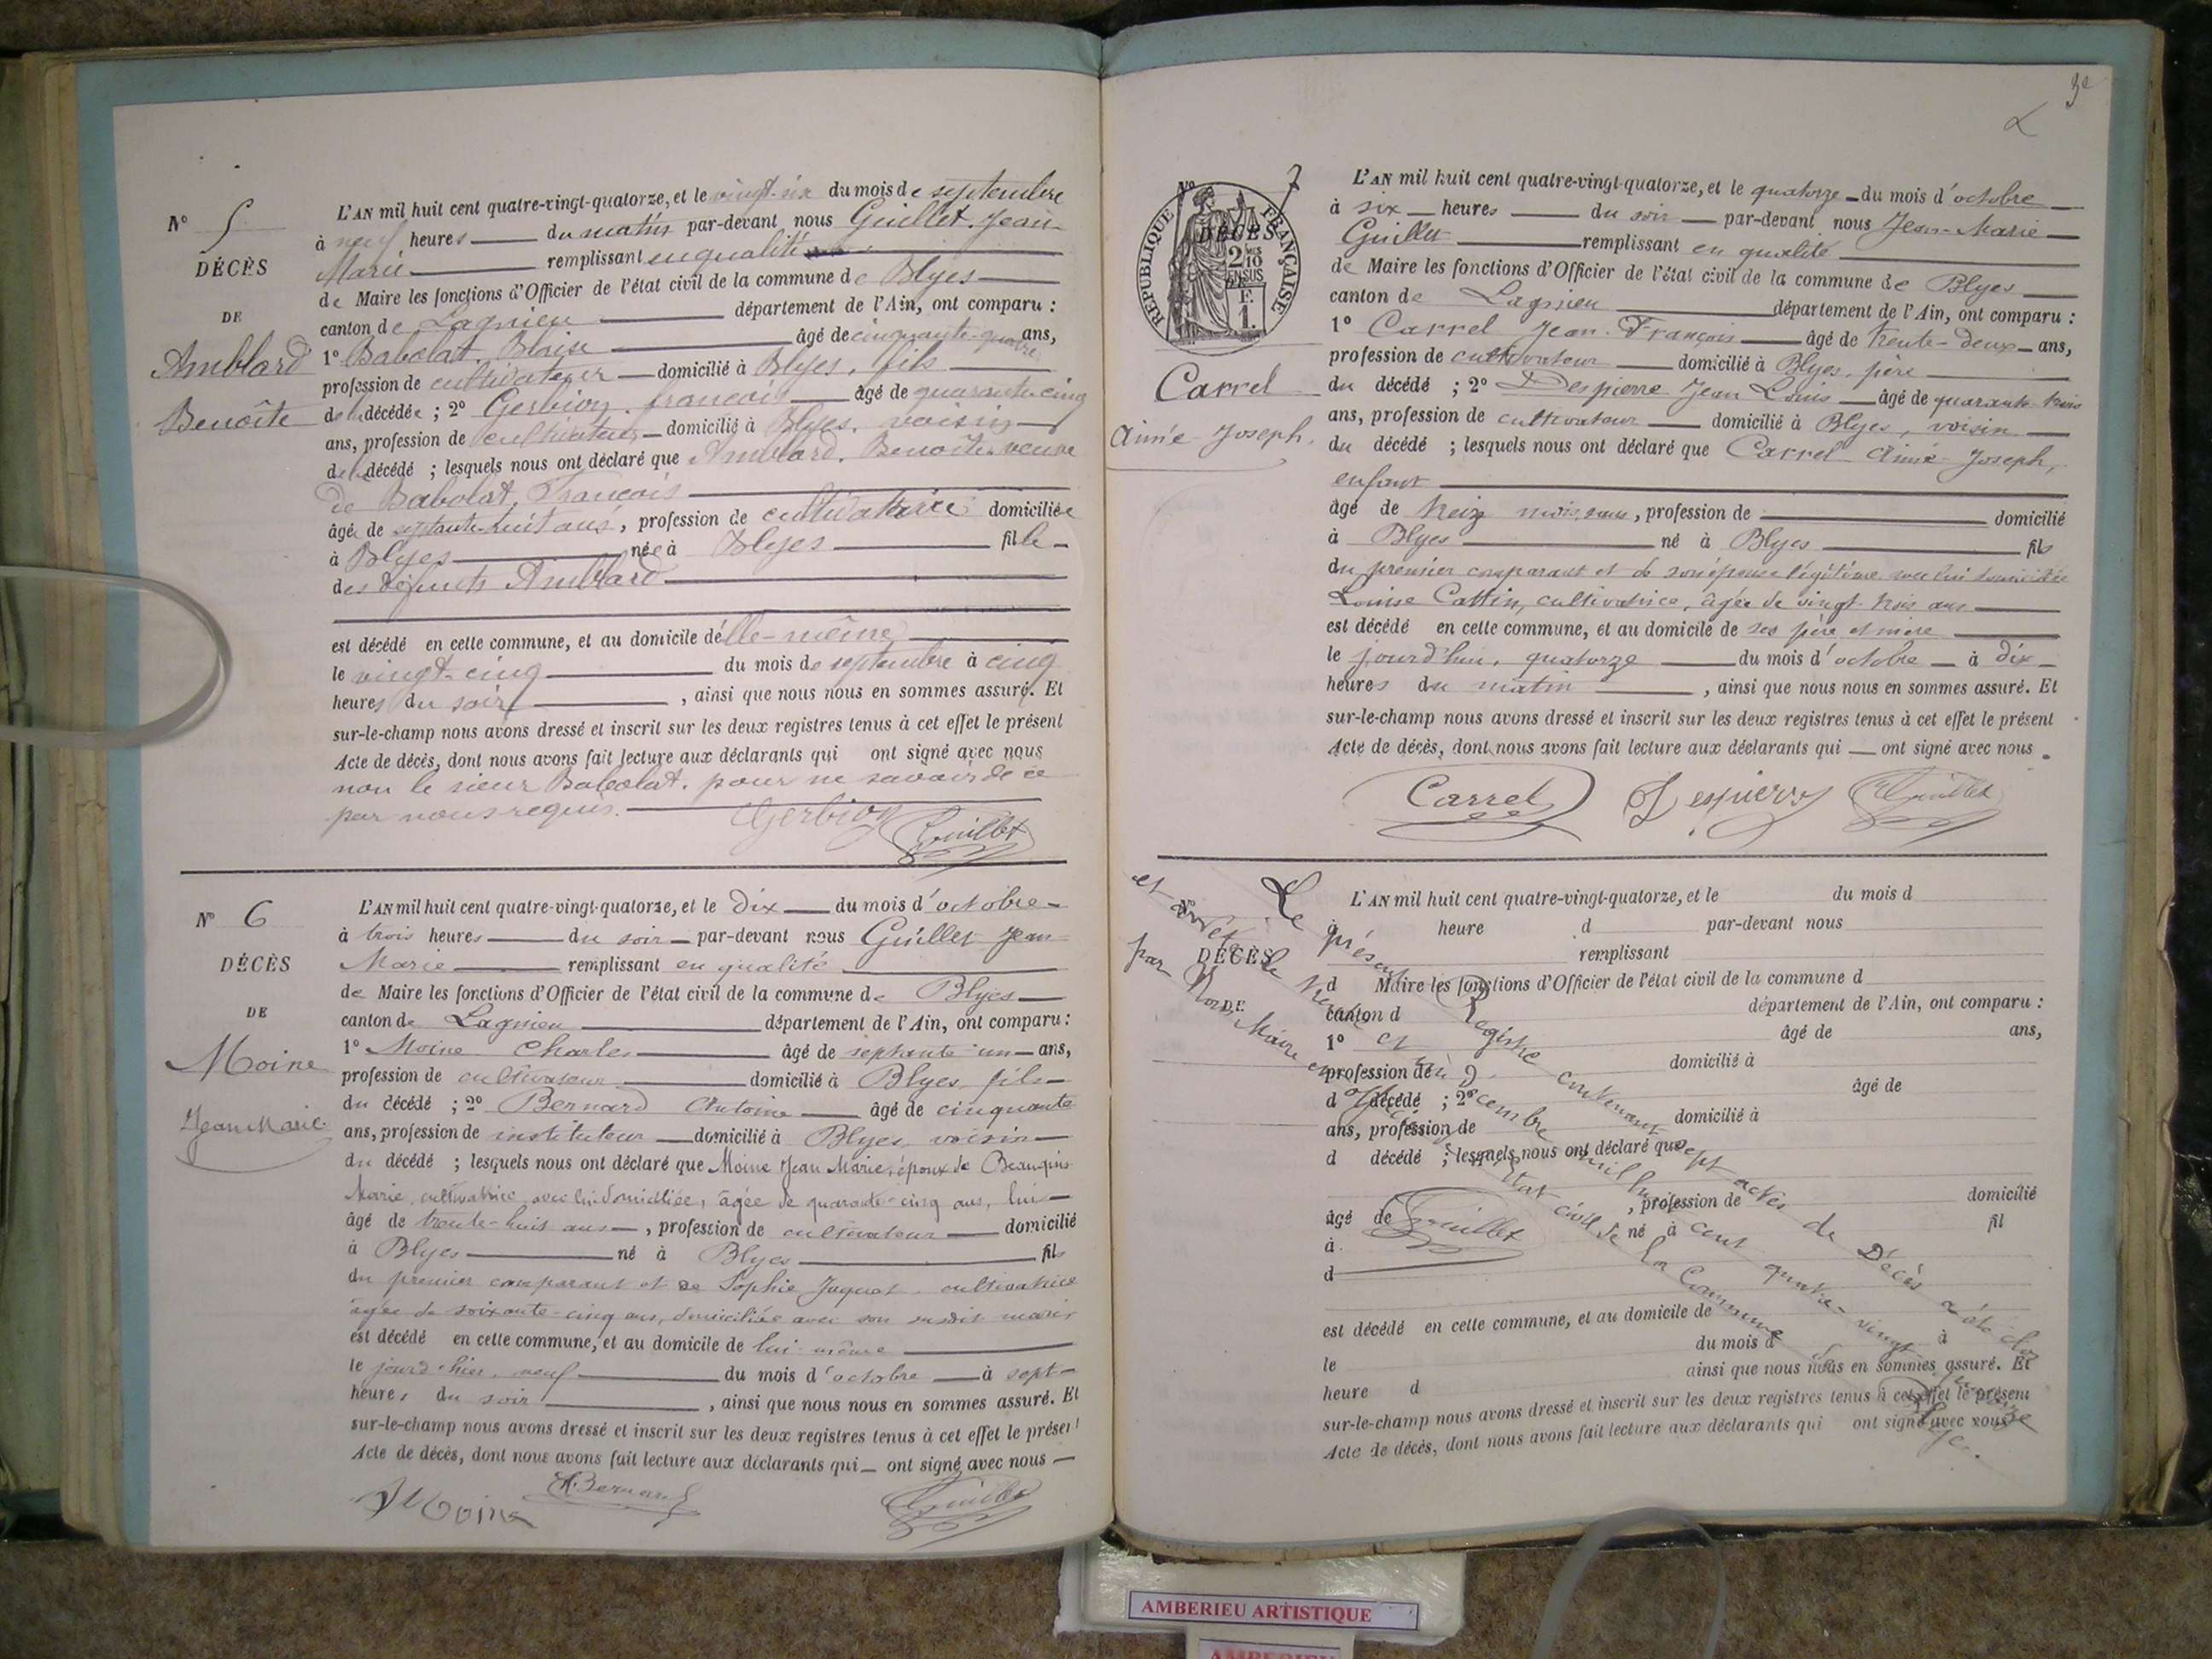 N° 5
DÉCÈS
DE
Amblard
Benoîte
L'AN mil huit cent quatre-vingt-quatorze, et le vingt-six du mois de septembre
à neuf heures du matin par-devant nous Guillet Jean-
Marie remplissant en qualité
de Maire les fonctions d'Officier de l'état civil de la commune de Blyes
canton de Lagnieu département de l'Ain, ont comparu :
1° Babolat Blaise âgé de cinquante-quatre ans,
profession de cultivateur domicilié à Blyes, fils
de la décédée ; 2° Gerbion françois âgé de quarante-cinq
ans, profession de cultivateur domicilié à Blyes, voisin
de la décédé ; lesquels nous ont déclaré que Amblard, Benoîte veuve
de Babolat, François
âgée de septante-huit ans, profession de cultivatrice domiciliée
à Blyes née à Blyes fille
des défunts Amblard
est décédé en cette commune, et au domicile d'elle-même
le vingt-cinq du mois de septembre à cinq
heures du soir, ainsi que nous nous en sommes assuré. Et
sur-le-champ nous avons dressé et inscrit sur les deux registres tenus à cet effet le présent
Acte de décès, dont nous avons fait lecture aux déclarants qui ont signé avec nous
non le sieur Babolat, pour ne savoir de ce
par nous requis.
Gerbion Guillet
N° 6
DÉCÈS
DE
Moine
Jean Marie
L'AN mil huit cent quatre-vingt-quatorze, et le dix du mois d'octobre
à trois heures du soir par-devant nous Guillet Jean-
Marie remplissant en qualité
de Maire les fonctions d'Officier de l'état civil de la commune de Blyes
canton de Lagnieu département de l'Ain, ont comparu :
1° Moine Charles âgé de septante-un ans,
profession de cultivateur domicilié à Blyes, fils
du décédé ; 2° Bernard Antoine âgé de cinquante
ans, profession de instituteur domicilié à Blyes, voisin
du décédé ; lesquels nous ont déclaré que Moine Jean Marie, époux de
Marie, cultivatrice, avec lui domiciliée, âgée de quarante-cinq ans, lui
âgé de trente-huit ans, profession de cultivateur domicilié
à Blyes né à Blyes fils
du premier comparant et de Sophie Jaquet, cultivatrice
âgée de soixante-cinq ans, domiciliée avec son susdit mari,
est décédé en cette commune, et au domicile de lui-même
le jourd'hier, neuf du mois d'octobre à sept
heures du soir, ainsi que nous nous en sommes assuré. Et
sur-le-champ nous avons dressé et inscrit sur les deux registres tenus à cet effet le présent
Acte de décès, dont nous avons fait lecture aux déclarants qui ont signé avec nous
Moine A. Bernard Guillet
3e
N° 7
RÉPUBLIQUE FRANÇAISE
DÉCÈS
Carrel
Aimé Joseph.
L'AN mil huit cent quatre-vingt-quatorze, et le quatorze du mois d'octobre
à six heures du soir par-devant nous Jean-Marie
Guillet remplissant en qualité
de Maire les fonctions d'Officier de l'état civil de la commune de Blyes
canton de Lagnieu département de l'Ain, ont comparu :
1° Carrel Jean-François âgé de trente-deux ans,
profession de cultivateur domicilié à Blyes, père
du décédé ; 2° Despierre Jean Louis âgé de quarante-trois
ans, profession de cultivateur domicilié à Blyes, voisin
du décédé ; lesquels nous ont déclaré que Carrel Aimé Joseph,
enfant
âgé de treize mois, profession de domicilié
à Blyes né à Blyes fils
du premier comparant et de son épouse légitime avec lui domiciliée
Louise Cattin, cultivatrice, âgée de vingt-trois ans
est décédé en cette commune, et au domicile de ses père et mère
le jourd'hui, quatorze du mois d'octobre à dix
heures du matin, ainsi que nous nous en sommes assuré. Et
sur-le-champ nous avons dressé et inscrit sur les deux registres tenus à cet effet le présent
Acte de décès, dont nous avons fait lecture aux déclarants qui ont signé avec nous.
Carrel Despierre Guillet
N°
DÉCÈS
DE
L'AN mil huit cent quatre-vingt-quatorze, et le du mois d
à heure d par-devant nous
remplissant
d Maire les fonctions d'Officier de l'état civil de la commune d
canton d département de l'Ain, ont comparu :
1° âgé de ans,
profession de domicilié à
d décédé ; 2° âgé de
ans, profession de domicilié à
d décédé ; lesquels nous ont déclaré que
âgé de, profession de domicilié
à né à fil
d
est décédé en cette commune, et au domicile de
le du mois d à
heure d ainsi que nous nous en sommes assuré. Et
sur-le-champ nous avons dressé et inscrit sur les deux registres tenus à cet effet le présent
Acte de décès, dont nous avons fait lecture aux déclarants qui ont signé avec nous
Le présent Registre contenant sept actes de Décès a été clos
et arrêté le trente et un Décembre mil huit cent quatre-vingt quatorze
par Nous Maire officier de l'état civil de la Commune de Blyes.
Guillet
AMBERIEU ARTISTIQUE
AMBERIEU